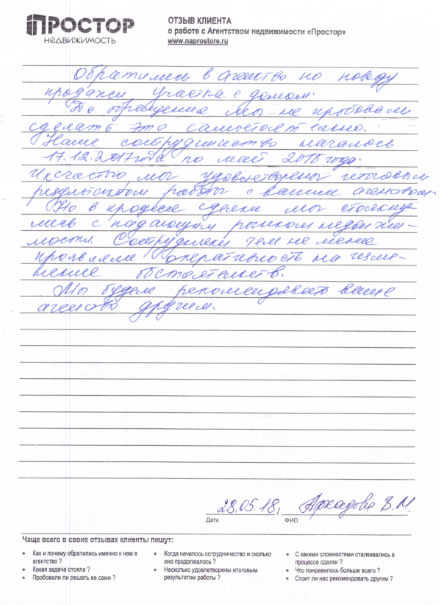 ПРОСТОР
НЕДВИЖИМОСТЬ
ОТЗЫВ КЛИЕНТА
о работе с Агентством недвижимости «Простор»
www.naprostore.ru
Обратились в агенство по поводу
продажи участка с домом.
До обращения мы не пробовали
сделать это самостоятельно.
Наше сотрудничество началось
17.12.2017 года по май 2018 года.
К счастью мы удовлетворены итоговым
результатом работы с вашим агенством
Но в процессе сделки мы столкну
лись с падающим рынком недвижи-
мости. Сотрудники тем не менее
проявляли оперативность на изме-
нение обстоятельств.
Мы будем рекомендовать ваше
агенство другим.
28.05.18, Аркадова В.М.
Дата ФИО
Чаще всего в своих отзывах клиенты пишут:
• Как и почему обратились именно к нам в
агентство ?
• Какая задача стояла ?
• Пробовали ли решать ее сами ?
• Когда началось сотрудничество и сколько
оно продолжалось ?
• Насколько удовлетворены итоговым
результатом работы ?
• С какими сложностями сталкивались в
процессе сделки ?
• Что понравилось больше всего ?
• Стоит ли нас рекомендовать другим ?